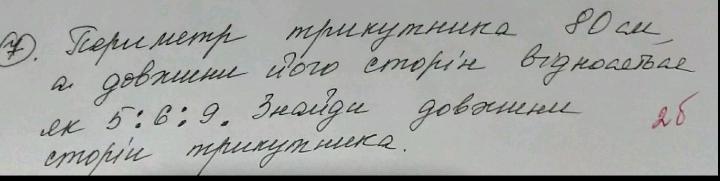 7. Периметр трикутника 80 см,
а довжини його сторін відносяться
як 5:6:9. Знайди довжини
сторін трикутника. 2б